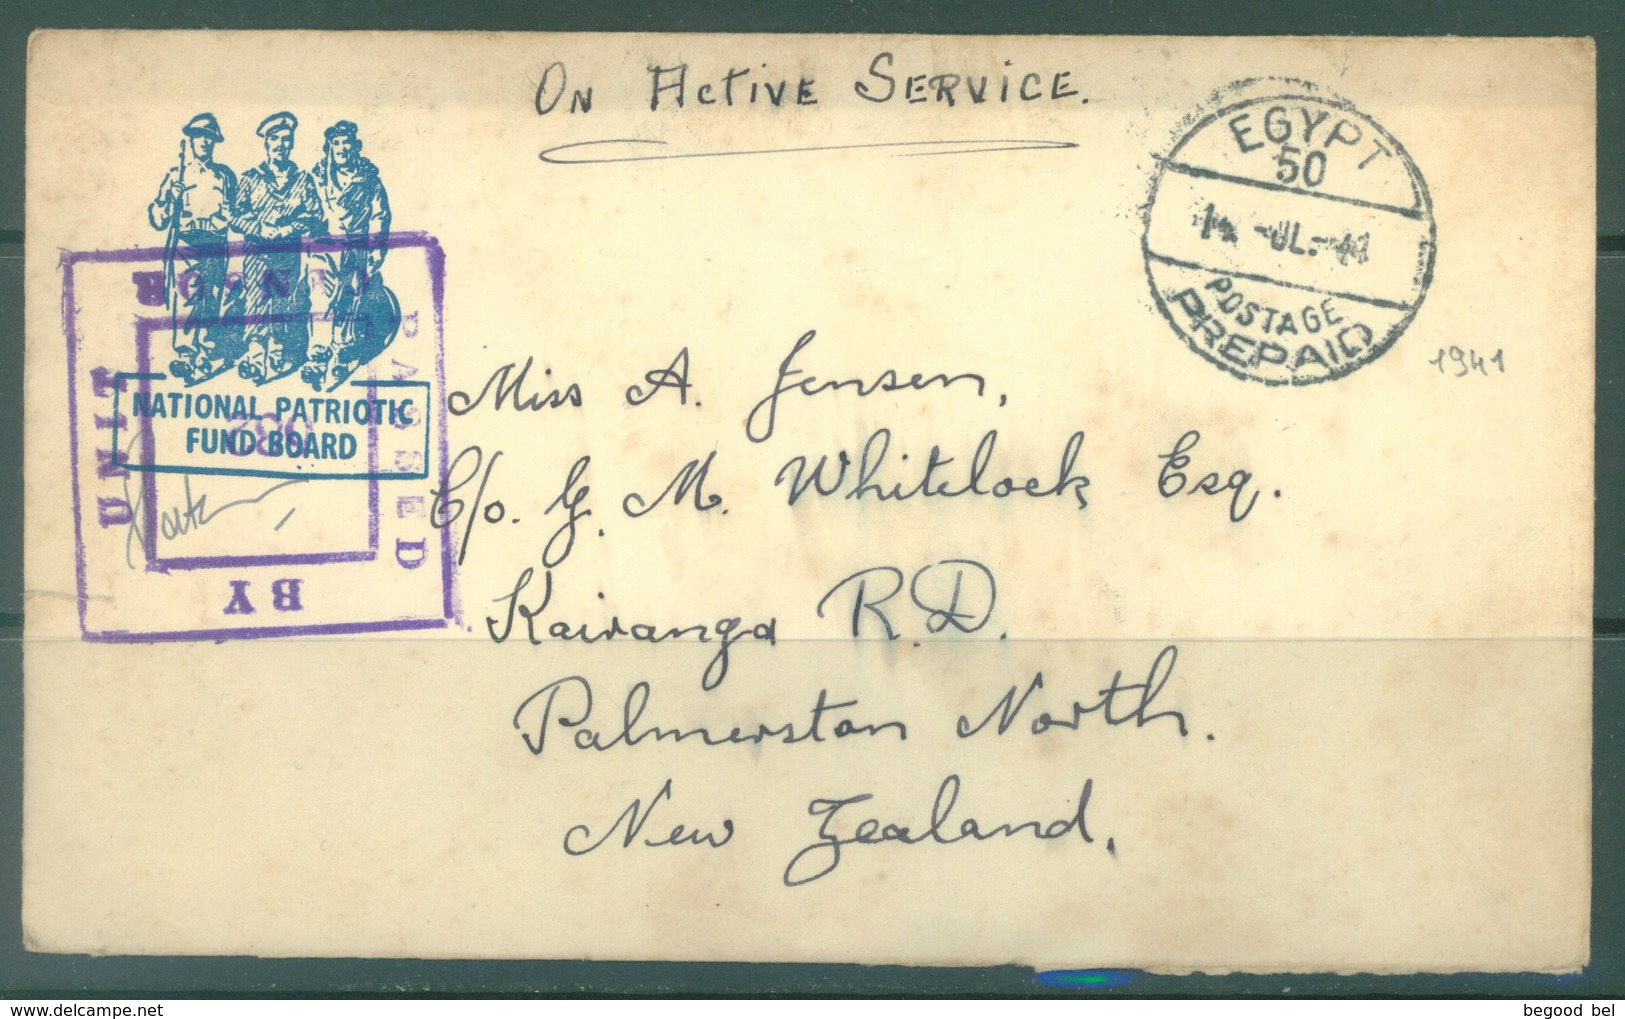 On Active Service.
EGYPT
50
JL 41
POSTAGE
PREPAID
1941
PASSED
BY
UNIT
CENSOR
NATIONAL PATRIOTIC
FUND BOARD
Miss A. Jensen,
C/o. G. M. Whitelock Esq.
Kairanga R.D.
Palmerston North.
New Zealand.
© delcampe.net
begood bel